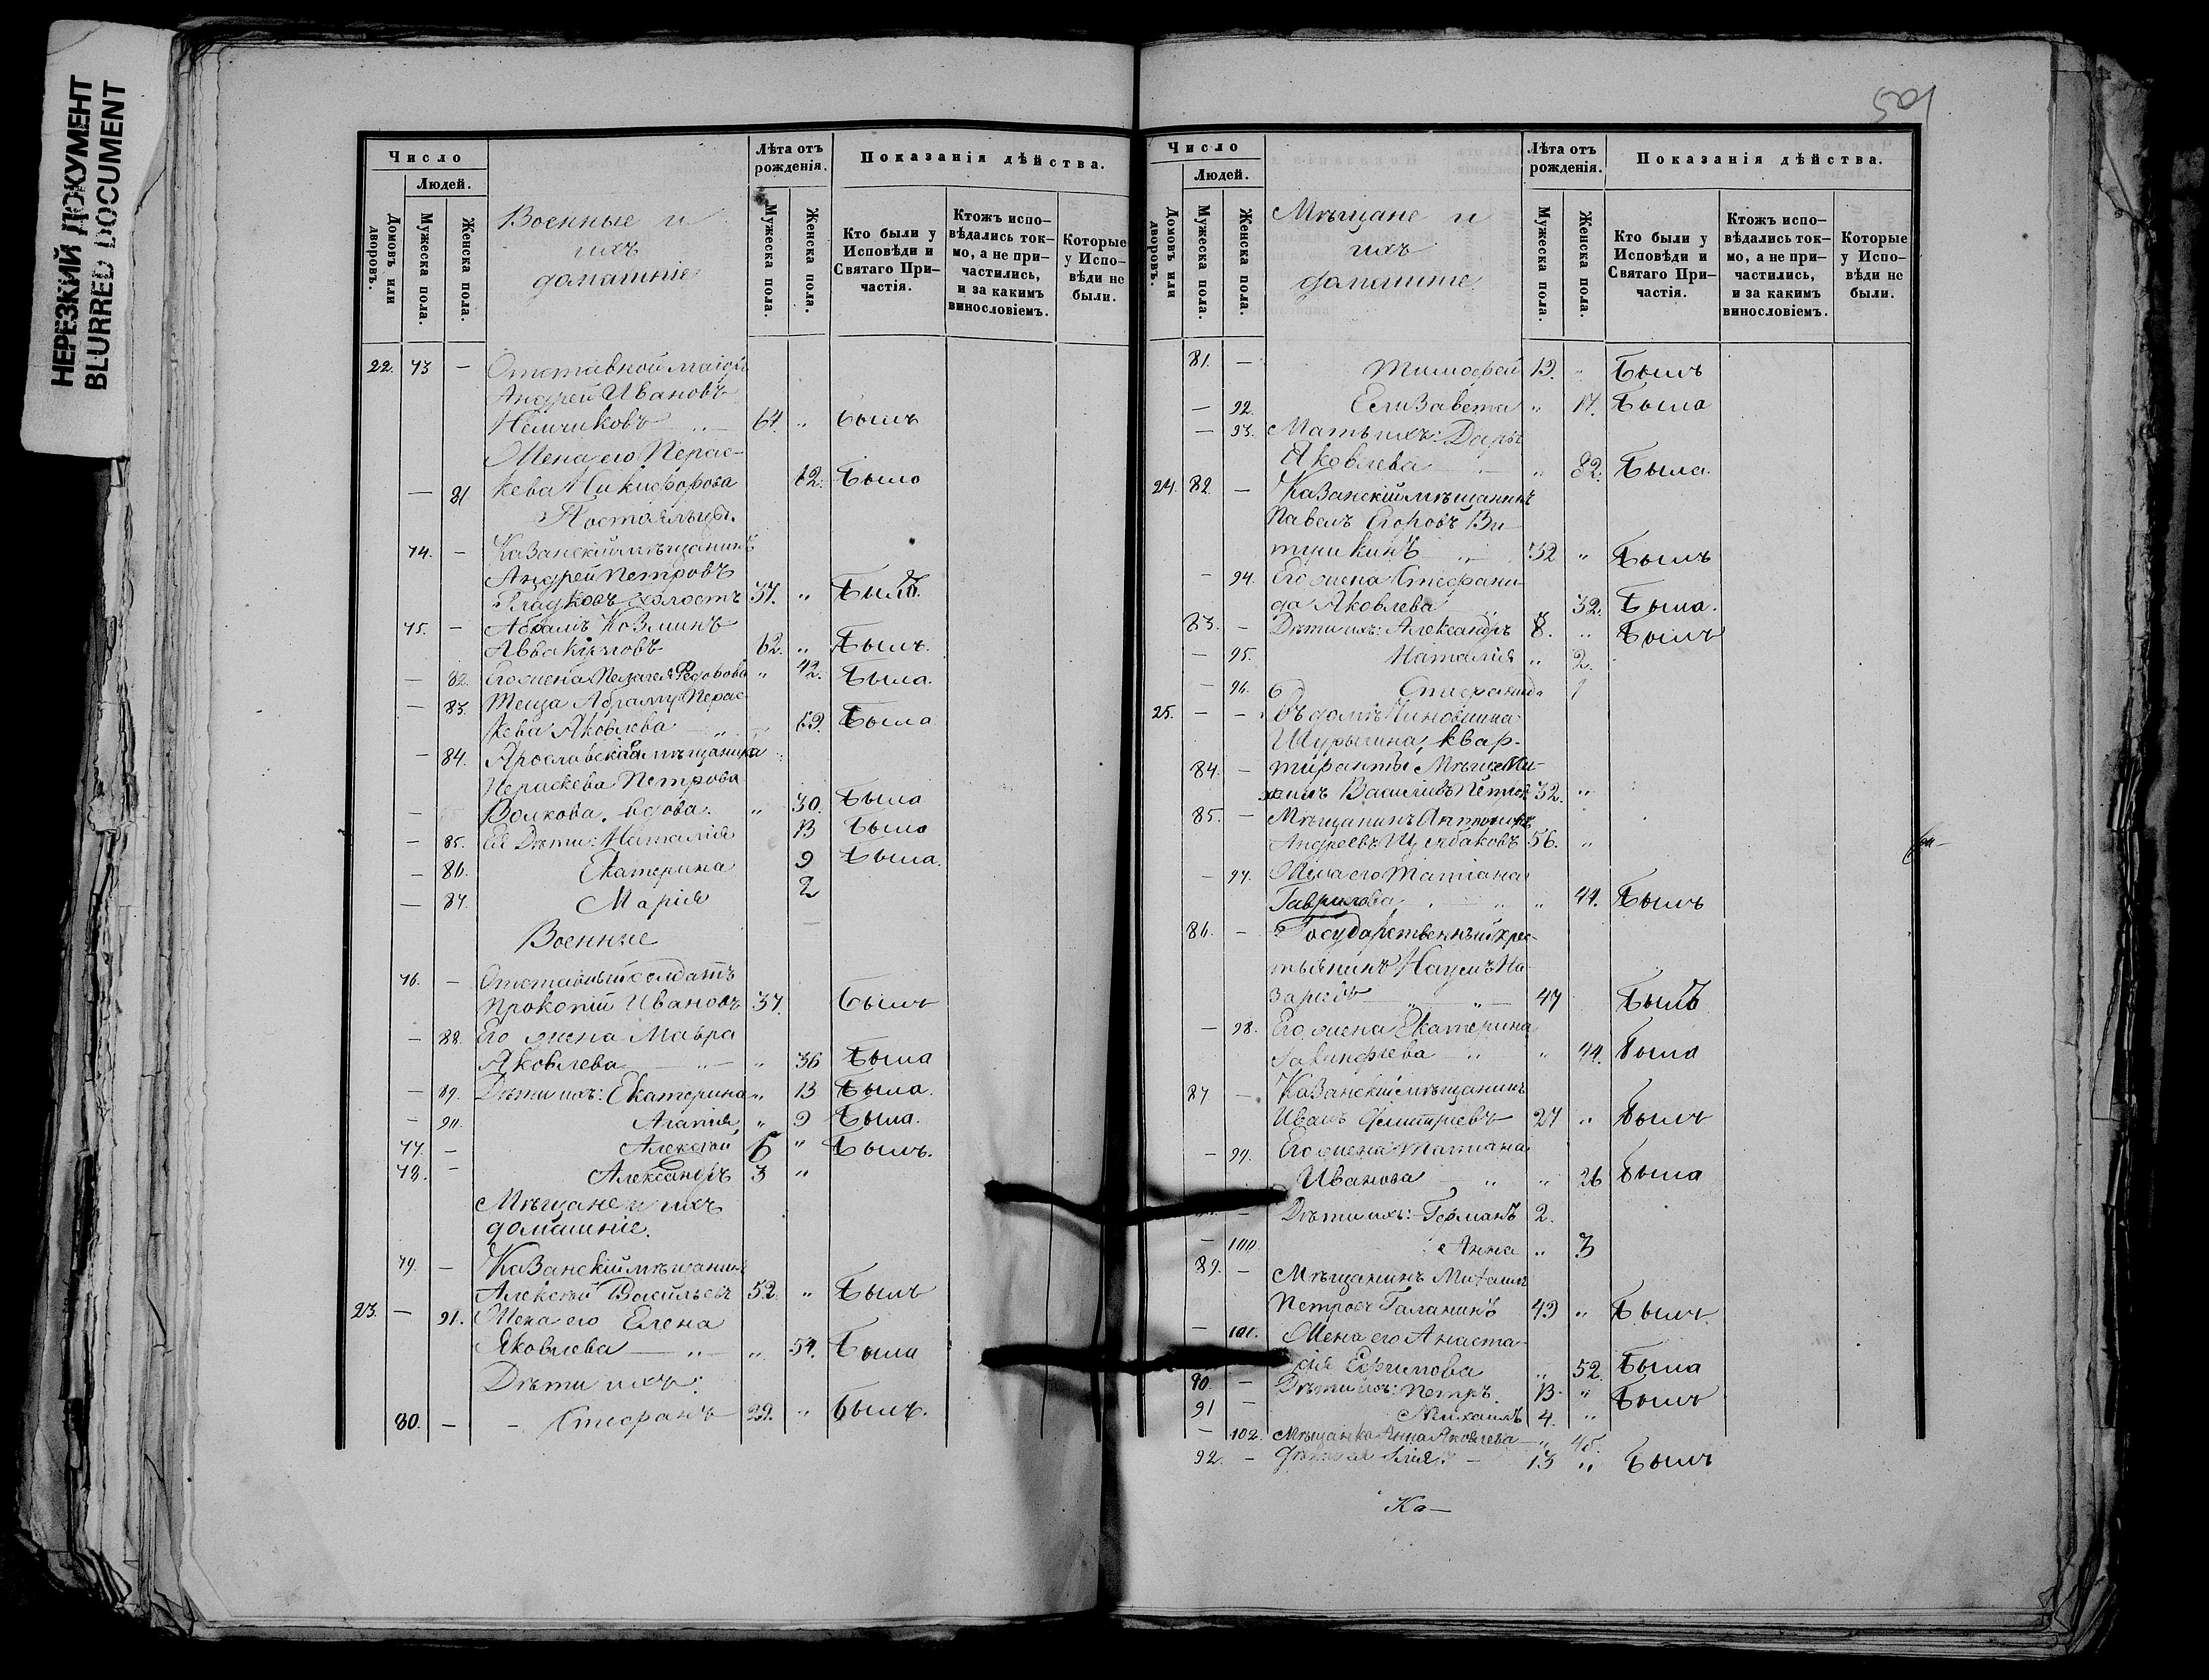 НЕРЕЗКИЙ ДОКУМЕНТ
BLURRED DOCUMENT
Число
Людей.
Домовъ или дворовъ.
Мужеска пола.
Женска пола.
Военные и
ихъ
домашніе
Лѣта отъ рожденія.
Мужеска пола.
Женска пола.
Показанія дѣйства.
Кто были у Исповѣди и Святаго При-частія.
Ктожъ испо-вѣдались ток-мо, а не при-частились, и за какимъ винословіемъ.
Которые у Испо-вѣди не были.
22. 73 — Отставной маіоръ
Андрей Ивановъ
64. " былъ
Жена его Парас-
— 81 кева Никифорова 62. Была
Постояльцы.
74. — Казанскій мѣщанинъ
Андрей Петровъ
Гладковъ холостъ 37. " Былъ
75. — Абрамъ Козминъ
Аввакумовъ 62. " Былъ.
— 82. Его жена Пелагея Федорова " 42. Была.
— 83. Теща Абраму Парас-
кева Яковлева 69. Была
— 84. Ярославская мѣщанка
Параскева Петрова
— Волкова. вдова. " 30. Была
— 85. Ея Дѣти: Наталія 13 Была
— 86. Екатерина 9 Была.
— 87. Марія 2
Военные
76. — Отставный солдатъ
Прокопій Ивановъ 37. Былъ
— 88. Его жена Мавра
Яковлева — " — " 36 Была
— 89. Дѣти ихъ: Екатерина " 13 Была.
— 90. Агапія " 9 Была.
77. — Алексѣй 6 " Былъ.
78. — Александръ 3 "
Мѣщане и ихъ
домашніе.
79. — Казанскій мѣщанинъ
Алексѣй Васильевъ 52. " Былъ
23. — 91. Жена его Елена
Яковлева — " — " 54. Была
Дѣти ихъ:
80. — - Стефанъ 29. " былъ.
501
Число
Людей.
Домовъ или дворовъ.
Мужеска пола.
Женска пола.
Мѣщане и
ихъ
домашніе
Лѣта отъ рожденія.
Мужеска пола.
Женска пола.
Показанія дѣйства.
Кто были у Исповѣди и Святаго При-частія.
Ктожъ испо-вѣдались ток-мо, а не при-частились, и за какимъ винословіемъ.
Которые у Испо-вѣди не были.
81. — Тимофей 19. " Былъ
— 92. Елизавета " 17. Была
— 93. Мать ихъ: Дарья
Яковлева — " 82. Была.
24. 82. — Казанскій мѣщанинъ
Павелъ Егоровъ Ви-
тушкинъ " 32 " Былъ
— 94. Его жена Стефани-
да Яковлева 32. Была.
83. — Дѣти ихъ: Александръ 8. " Былъ
— 95. Наталія " 2.
— 96. Стефанида 1
25. — — Въ домѣ Чиновника
Шурыгина, квар-
84. — тиранты Мѣщ. Ми-
хаилъ Василіевъ Петровъ 32. "
85. — Мѣщанинъ
Андреевъ 56. "
— 97. Жена его Татіана
Гаврилова " " 44. Былъ
86. — Государственный крес-
тьянинъ Наумъ На-
зарьевъ " " — 47 Былъ
— 98. Его жена Екатерина
" " 44. Была
87 — Казанскій мѣщанинъ
Иванъ Дмитріевъ 27 " Былъ
— 99. Его жена Татіана
Иванова " " 26 Была
— Дѣти ихъ: Германъ 2.
— 100. Анна " 3
89. — Мѣщанинъ Михаилъ
Петровъ Галанинъ 49 " Былъ.
— 101. Жена его Анаста-
сія Ефимова " 52. Была
90. — Дѣти ихъ: Петръ 13 " Былъ
91 — Михаилъ 4. "
— 102. Мѣщанка Анна Яковлева " 45.
92. — 13 " Былъ
Ка—